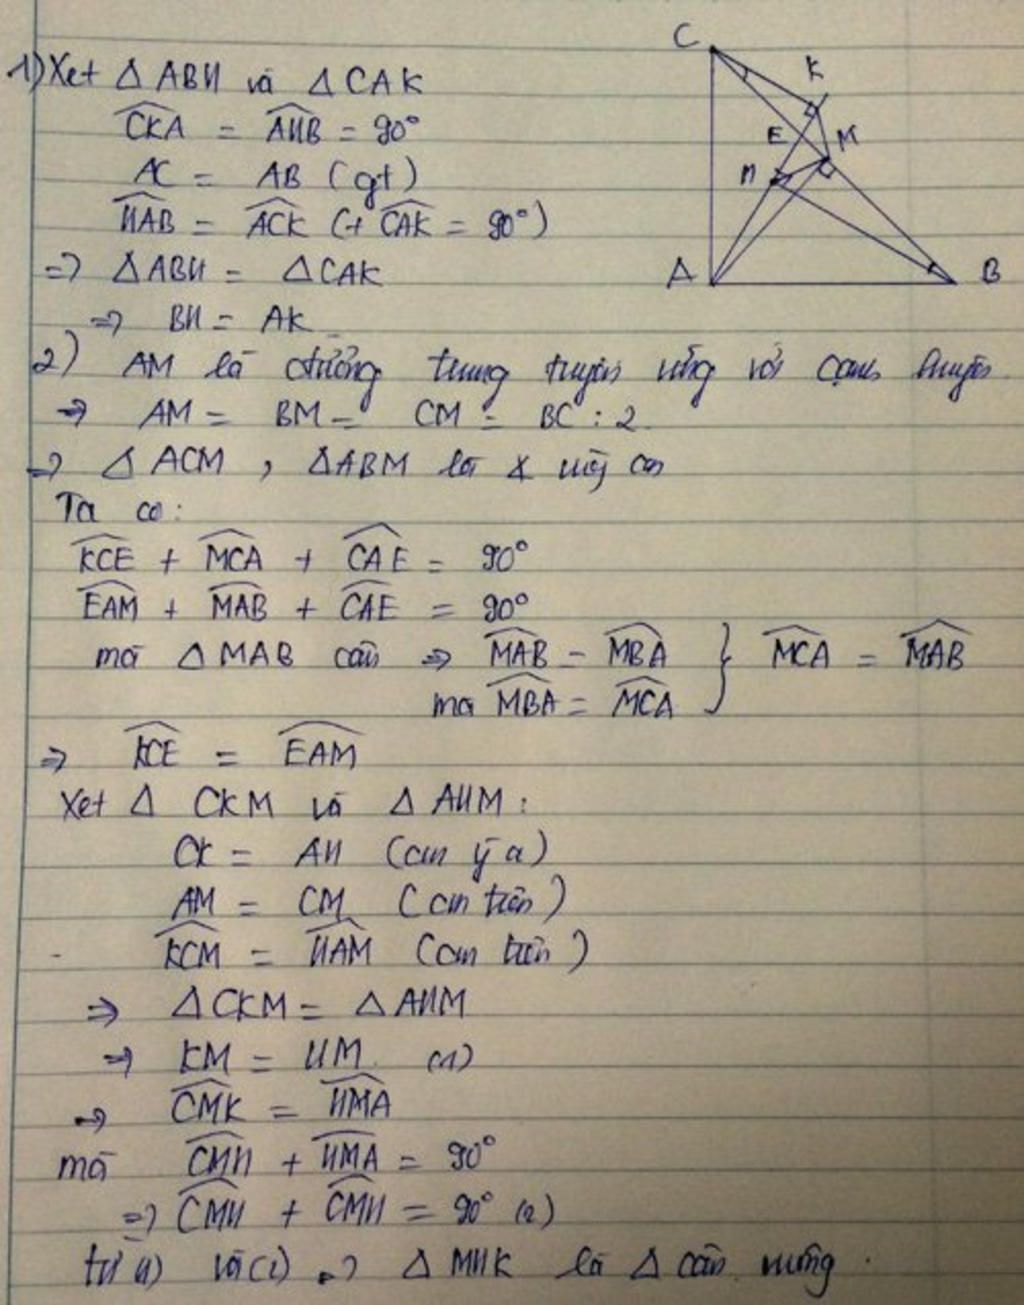 1) Xet △ ABH và △ CAK
C
K
E
M
H
A
B
CKA = AHB = 90°
AC = AB (gt)
HAB = ACK (+ CAK = 90°)
=> △ABH = △CAK
=> BH = AK
2) AM là đường trung tuyến ứng với cạnh huyền
=> AM = BM = CM = BC : 2
=> △ ACM , △ABM là
Ta có:
KCE + MCA + CAE = 90°
EAM + MAB + CAE = 90°
mà △ MAB cân => MAB = MBA } MCA = MAB
mà MBA = MCA
=> KCE = EAM
Xet △ CKM và △ AHM :
CK = AH (cm ý a)
AM = CM (cm trên)
KCM = HAM (cm trên)
=> △CKM = △AHM
=> KM = HM (1)
=> CMK = HMA
mà CMH + HMA = 90°
=> CMH + CMH = 90° (2)
từ (1) và (2) => △ MHK là △ cân vuông .